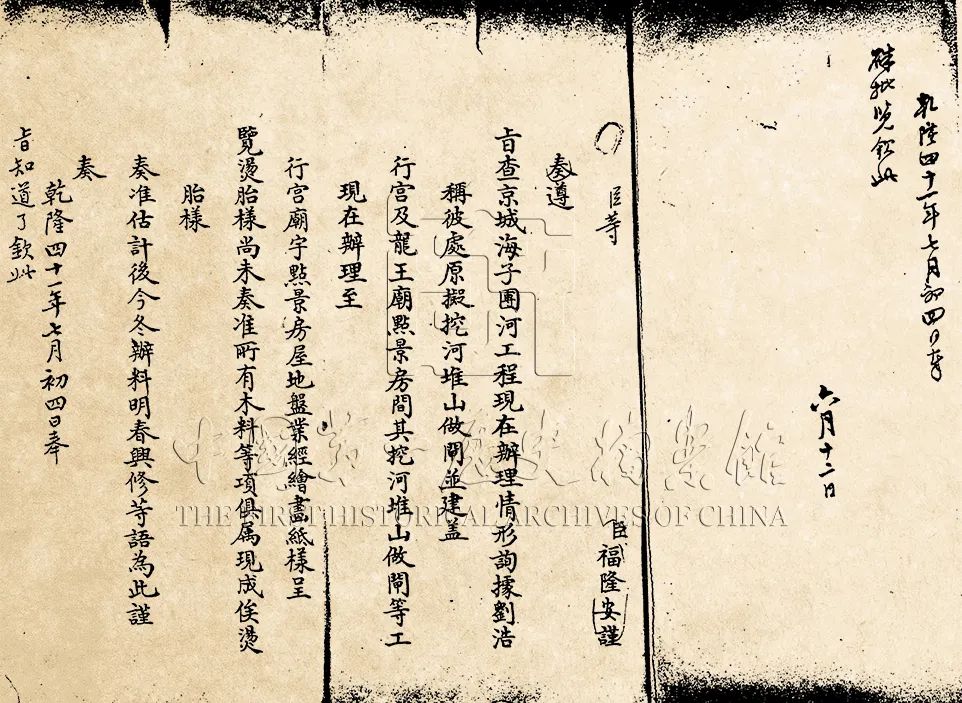 乾隆四十一年七月初四日奉
硃批覽欽此
六月十二日
臣等
臣福隆安謹
奏遵
旨查京城海子團河工程現在辦理情形詢據劉浩
稱彼處原擬挖河堆山做閘並建蓋
行宮及龍王廟點景房間其挖河堆山做閘等工
現在辦理至
行宮廟宇點景房屋地盤業經繪畫紙樣呈
覽燙胎樣尚未奏准所有木料等項俱属現成俟燙
胎樣
奏准估計後今冬辦料明春興修等語為此謹
奏
乾隆四十一年七月初四日奉
旨知道了欽此
中國第一歷史檔案館
THE FIRST HISTORICAL ARCHIVES OF CHINA